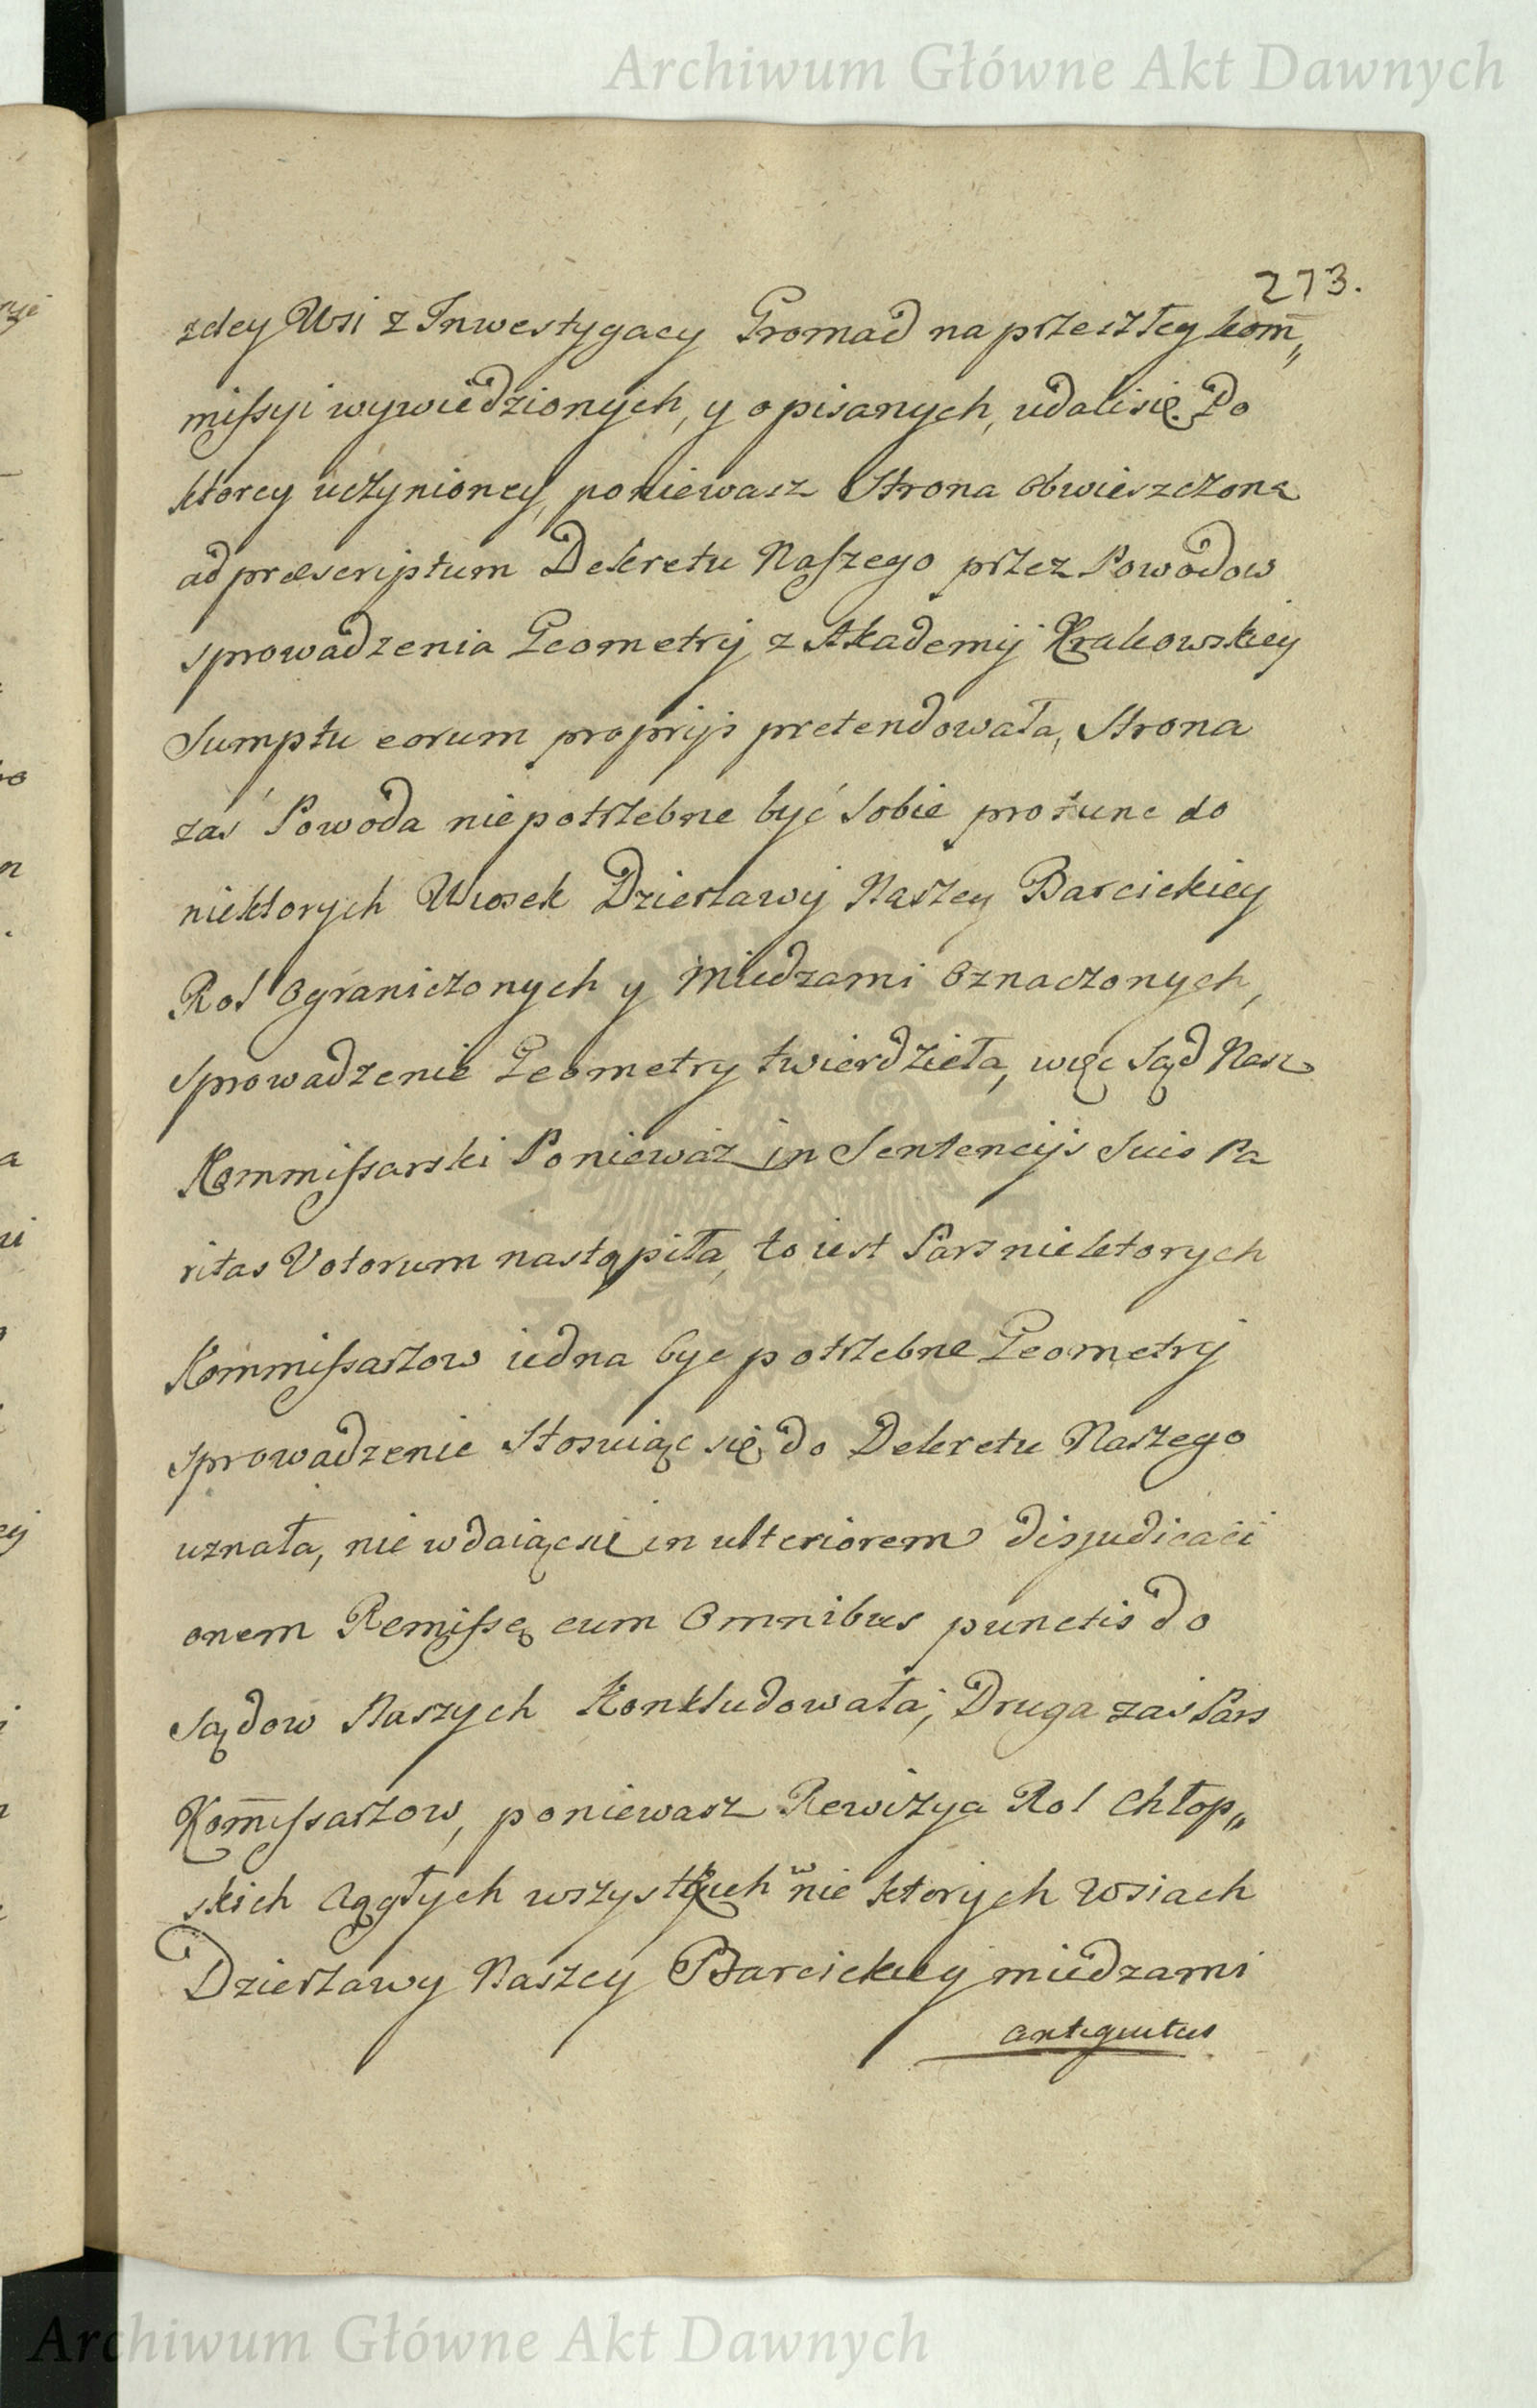 Archiwum Główne Akt Dawnych
273.
zdey Wsi z Inwestygacy Gromad na przeszłey kom̅„
missyi wywiedzionych, y opisanych, udali się. Do
ktorey uczynioney, poniewasz Strona obwieszczona
ad præscriptum Dekretu Naszego przez Powodow
sprowadzenia Geometry z Akademij Krakowskiey
Sumptu eorum proprijs pretendowała, Strona
zaś Powoda niepotrzebne być Sobie prożune do
niektorych Wiosek Dzierzawy Naszey Barcickiey
Rol Ograniczonych y Miedzami Oznaczonych,
Sprowadzenie Geometry twierdzieła, więc Sąd Nasz
Kommissarski Ponieważ in Sentencijs Suis Pa
ritas Votorum nastąpiła, to iest Pars niektorych
Kommissarzow iedna byc potrzebne Geometry
sprowadzenie Stosuiąc się do Dekretu Naszego
uznała, nie wdaiąc sie in ulteriorem disjudicati
onem Remissę cum Omnibus punctis do
Sądow Naszych Konkludowała; Druga zaś Pars
Kom̅issarzow, poniewasz Rewizya Rol Chłop„
skich Ciągłych wszystkich w nie ktorych Wsiach
Dzierzawy Naszey Barcickiey miedzami
antiquitus
Archiwum Główne Akt Dawnych